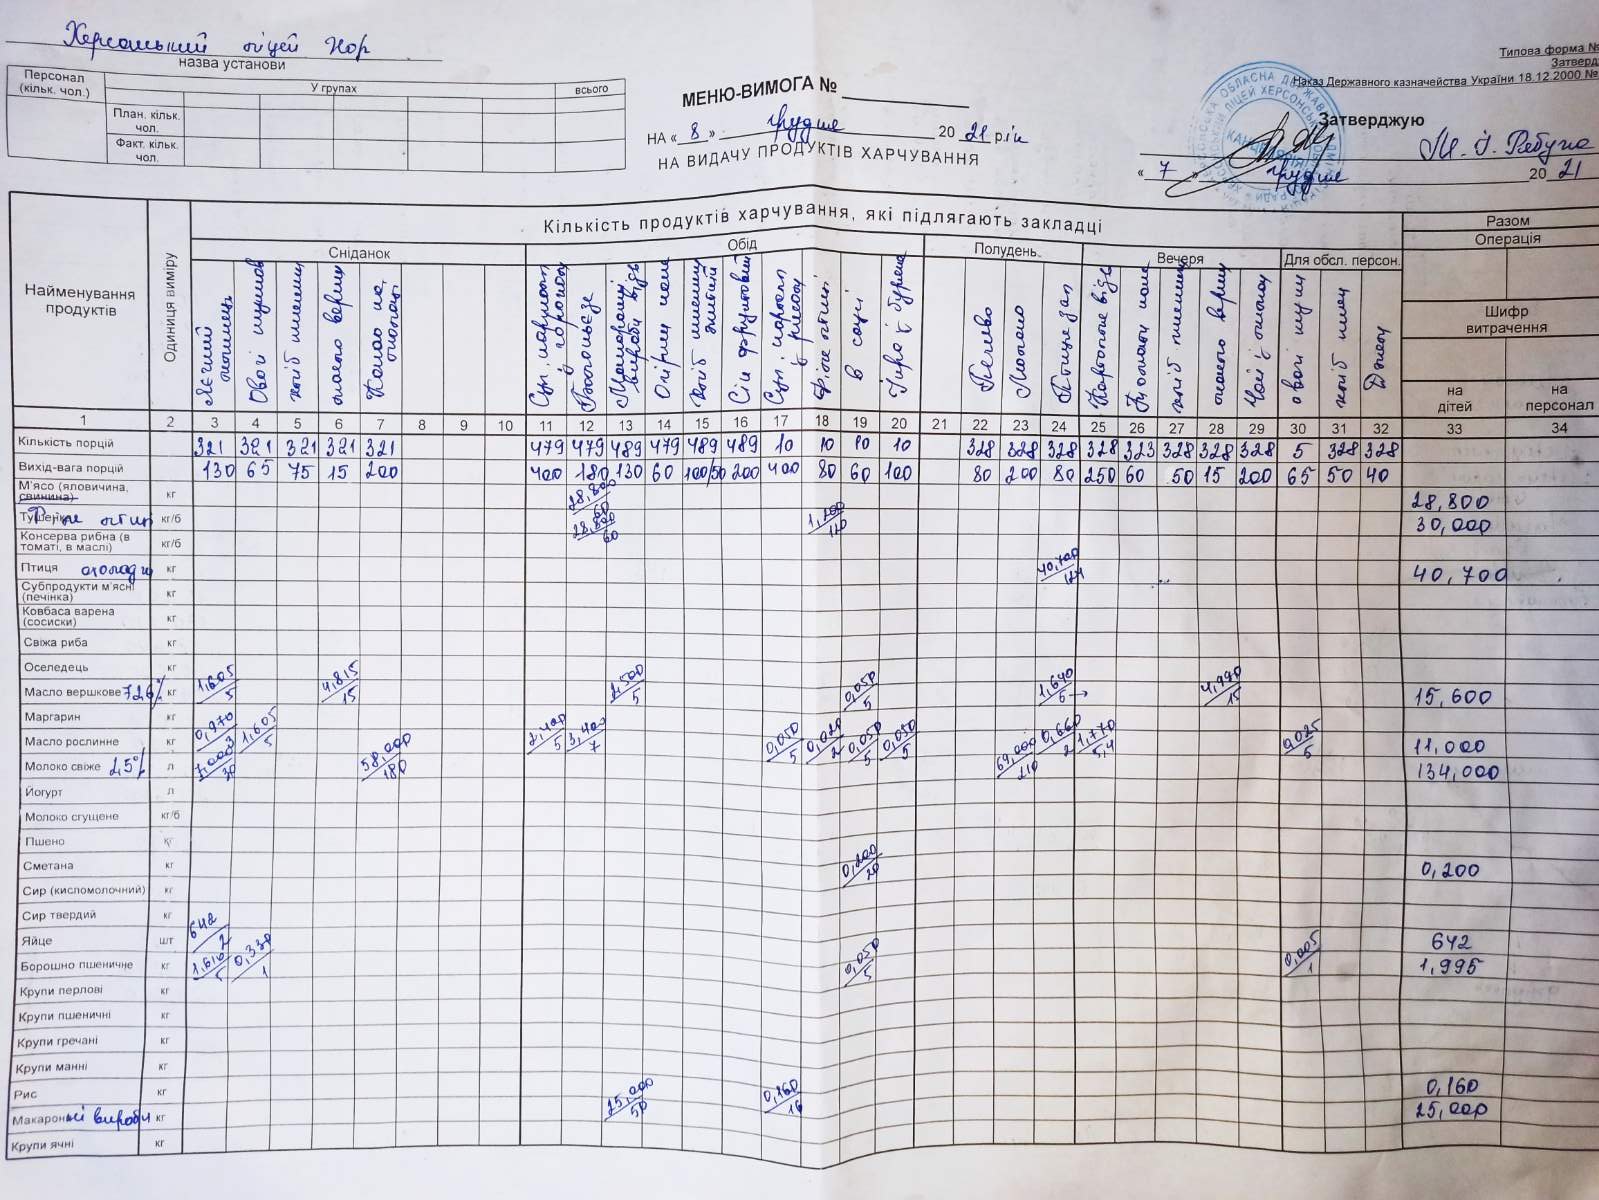 Херсонський ліцей
назва установи
Персонал (кільк. чол.)
У групах
всього
План. кільк. чол.
Факт. кільк. чол.
МЕНЮ-ВИМОГА №
НА « 8 » грудня 20 21 рік
НА ВИДАЧУ ПРОДУКТІВ ХАРЧУВАННЯ
Типова форма №
Затверд
Наказ Державного казначейства України 18.12.2000 №
Затверджую
КАНЦЕЛЯРІЯ
« 7 » грудня 20 21
Найменування продуктів
Одиниця виміру
Кількість продуктів харчування, які підлягають закладці
Разом
Операція
Сніданок
Обід
Полудень
Вечеря
Для обсл. персон.
Шифр витрачення
на дітей
на персонал
Омлет
Овочі
хліб
масло верш
Какао на молоці
Макаронні вироби відв
Сік фруктовий
Філе птиці
в соусі
Печиво
Молоко
Картопля відв
1 2 3 4 5 6 7 8 9 10 11 12 13 14 15 16 17 18 19 20 21 22 23 24 25 26 27 28 29 30 31 32 33 34
Кількість порцій 321 321 321 321 321 479 479 489 479 489 489 10 10 10 10 328 328 328 328 323 328 328 328 5 328 328
Вихід-вага порцій 130 65 75 15 200 400 180 130 60 100/50 200 400 80 60 100 80 200 80 250 60 50 15 200 65 50 40
М'ясо (яловичина, свинина) кг 28,800/60 28,800
Тушенка філе птиці кг/б 28,800/60 1,200/120 30,000
Консерва рибна (в томаті, в маслі) кг/б
Птиця охолодж кг 40,700/124 40,700
Субпродукти м'ясні (печінка) кг
Ковбаса варена (сосиски) кг
Свіжа риба кг
Оселедець кг
Масло вершкове 72,6% кг 1,605/5 4,815/15 2,500/5 0,050/5 1,640/5 4,990/15 15,600
Маргарин кг
Масло рослинне кг 0,970/3 1,605/5 2,400/5 3,400/7 0,050/5 0,020/2 0,050/5 0,050/5 0,660/2 1,770/5,4 0,025/5 11,000
Молоко свіже 2,5% л 7,000/20 58,000/180 69,000/210 134,000
Йогурт л
Молоко сгущене кг/б
Пшено кг
Сметана кг 0,200/20 0,200
Сир (кисломолочний) кг
Сир твердий кг
Яйце шт 642/2 642
Борошно пшеничне кг 1,610/5 0,330/1 0,050/5 0,005/1 1,995
Крупи перлові кг
Крупи пшеничні кг
Крупи гречані кг
Крупи манні кг
Рис кг 0,160/16 0,160
Макаронні вироби кг 25,000/50 25,000
Крупи ячні кг